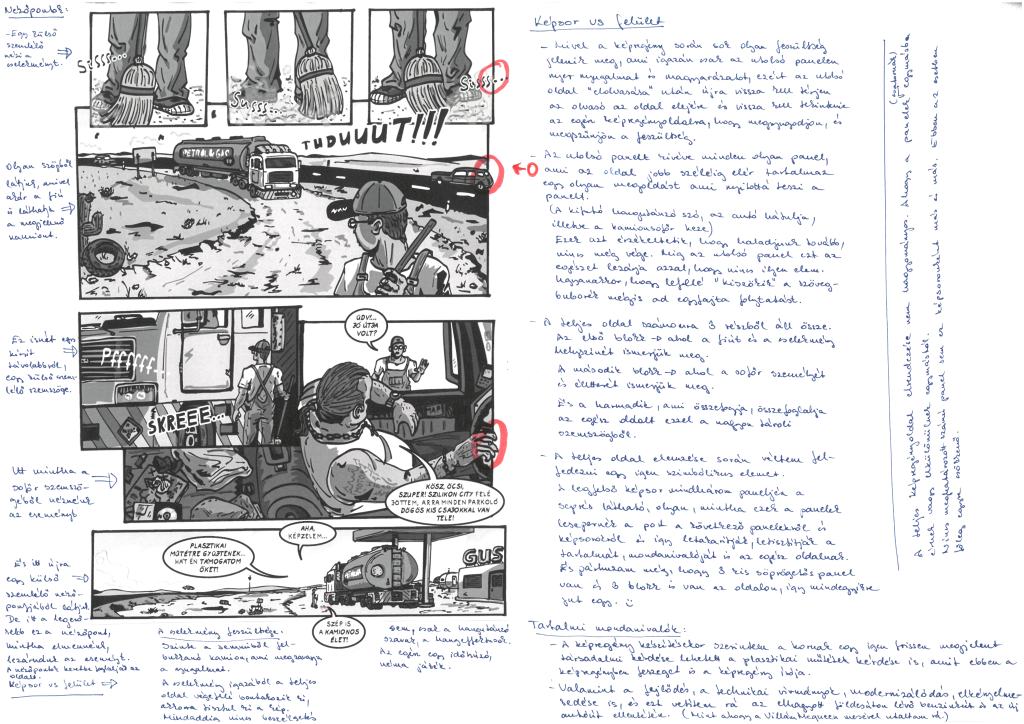 Nézőpontok:
- Egy külső
szemlélő
nézi a
cselekményt.
Olyan szögből
látjuk, amivel
akár a fiú
is láthatja
a megjelenő
kamiont.
Ez ismét egy
kívül
távolabbról,
egy külső szem-
lélő szemszöge.
Itt mintha a
sofőr szemszö-
géből néznénk
az eseményt
És itt újra
egy külső
szemlélő néző-
pontjából látjuk.
De itt a legerő-
sebb ez a nézőpont,
mintha elmennénk,
lezárnánk az eseményt.
A nézőpontok keretbe foglalják az
oldalt.
Képsor vs felület →
Sisss...
Susss...
Sisss...
TUDUUUT!!!
PETROL & GAS
Pffffff...
SKREEE...
ÜDV!...
JÓ ÚTJA
VOLT?
KÖSZ, ÖCSI,
SZUPER! SZILIKON CITY FELÉ
JÖTTEM, ARRA MINDEN PARKOLÓ
DÖGÖS KIS CSAJOKKAL VAN
TELE!
AHA,
KÉPZELEM...
PLASZTIKAI
MŰTÉTRE GYŰJTENEK...
HÁT ÉN TÁMOGATOM
ŐKET!
GUS
SZÉP IS
A KAMIONOS
ÉLET!
A cselekmény feszültsége:
Szinte a semmiből fel-
bukkanó kamion, ami megzavarja
a nyugalmat.
A cselekmény igazából a teljes
oldal végefelé bontakozik ki,
arra tisztul ki a kép.
Mindaddig nincs beszélgetés
sem, csak a hangutánzó
szavak, a hangeffektusok.
Az egész egy időhúzó,
néma játék.
Képsor vs felület
- Mivel a képregény során sok olyan feszültség
jelenik meg, ami igazán csak az utolsó panelen
nyer nyugalmat és magyarázatot, ezért az utolsó
oldal "elolvasása" után újra vissza kell térjen
az olvasó az oldal elejére és vissza kell tekintenie
az egész képregényoldalra, hogy megnyugodjon, és
megszűnjön a feszültség.
- Az utolsó panelt kivéve minden olyan panel,
ami az oldal jobb széléig elér tartalmaz
egy olyan megoldást ami nyitottá teszi a
panelt.
(A kifutó hangutánzó szó, az autó hátulja,
illetve a kamionsofőr keze)
Ezek azt érzékeltetik, hogy haladjunk tovább,
nincs még vége. Míg az utolsó panel ezt az
egészet lezárja azzal, hogy nincs ilyen elem.
Hagyanakkor, hogy lefelé "kicsúszik" a szöveg-
buborék mégis ad egyfajta folytatást.
- A teljes oldal számomra 3 részből áll össze.
Az első blokk → ahol a fiút és a cselekmény
helyszínét ismerjük meg.
A második blokk → ahol a sofőr személyét
és életterét ismerjük meg.
És a harmadik, ami összefogja, összefoglalja
az egész oldalt ezzel a nagyon távoli
szemszögből.
- A teljes oldal elemzése során véltem fel-
fedezni egy igen szimbólikus elemet.
A legfelső képsor mindhárom paneljén a
seprés látható, olyan, mintha ezek a panelek
lesepernék a port a következő panelekről és
képsorokról és így letakarítják, letisztítják a
tartalmát, mondanivalóját is az egész oldalnak.
És párhuzam még, hogy 3 kis söprögetős panel
van és 3 blokk is van az oldalon, így mindegyikre
jut egy. :)
A teljes képregényoldal elrendezése nem hagyományos. Ahogy a panelek egymásba
(csatornák)
érnek vagy elkülönülnek egymástól.
Nincs meghatározott számú panel sem a képsoronként más és más. Ebben az esetben
főleg egyre csökkenő.
Tartalmi mondanivalók:
- A képregény készítésekor szerintem a kornak egy igen frissen megjelent
társadalmi kérdése lehetett a plasztikai műtétek kérdése is, amit ebben a
képregényben feszeget is a képregény írója.
- Valamint a fejlődés, a technikai vívmányok, modernizálódás, elkényelme-
sedése is, és ezt vetítem rá az elhagyott földúton lévő benzinkút és az új
autóút ellentétén. (Mint ahogy a Villám Mcqueen mesénél utaltam rá.)